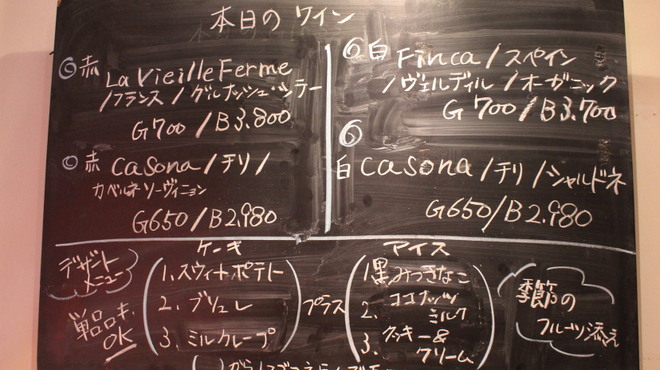 本日のワイン
◎赤 La Vieille Ferme
/フランス/グルナッシュ・シラー
G700/B3.800
◎赤 Casona/チリ/
カベルネソーヴィニョン
G650/B2.980
⑥白 Finca/スペイン
/ヴェルディル/オーガニック
G700/B3.700
⑥
白 Casona/チリ/シャルドネ
G650/B2.980
デザート
メニュー
単品も
OK
ケーキ
1.スウィートポテト
2.ブリュレ
3.ミルクレープ
プラス
アイス
1.黒みつきなこ
2.ココナッツ
ミルク
3.クッキー&
クリーム
季節の
フルーツ添え